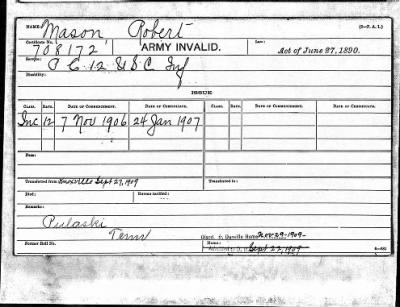 NAME: Mason Robert (3-P. A. I.)
Certificate No. 708172 ARMY INVALID. Law: Act of June 27, 1890.
Service: 12 U.S.C. Inf
Disability:
ISSUE
CLASS. RATE. DATE OF COMMENCEMENT. DATE OF CERTIFICATE. CLASS. RATE. DATE OF COMMENCEMENT. DATE OF CERTIFICATE.
Inc 12 7 Nov 1906 24 Jan 1907
Transferred from Knoxville Sept 27, 1909 Transferred to:
Died: Bureau notified:
Remarks:
Pulaski
Tenn
Danville Home Nov 29-1909-
Former Roll No. Home: Sept 22, 1909